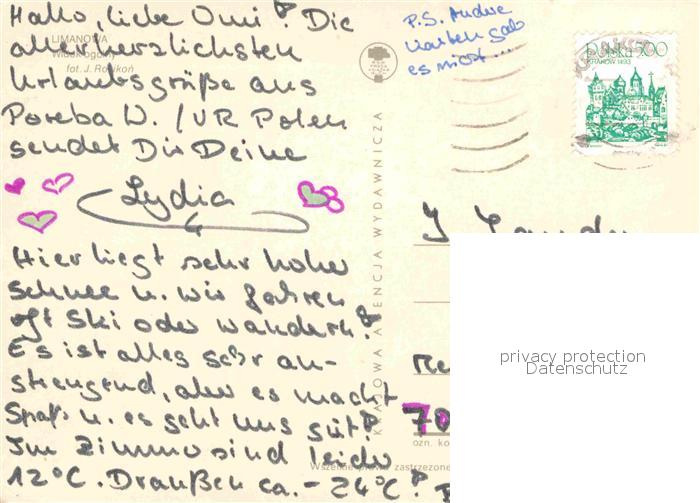 Hallo, liebe Omi! Die
allerherzlichsten
Urlaubsgrüße aus
Poreba W. /VR Polen
sendet Dir Deine
Lydia
P.S. Andre
Karten gab
es nicht ...
LIMANOWA
Widok ogólny
fot. J. Rosikoń
Polska 5,00
KRAKÓW 1493
KRAJOWA AGENCJA WYDAWNICZA
Hier liegt sehr hoher
Schnee u. wir fahren
oft Ski oder wandern!
Es ist alles sehr an-
strengend, aber es macht
Spaß u. es geht uns gut!
Im Zimmer sind leider
12°C. Draußen ca. - 24°C!
70
ozn. ko
Wszelkie prawa zastrzeżone
privacy protection
Datenschutz